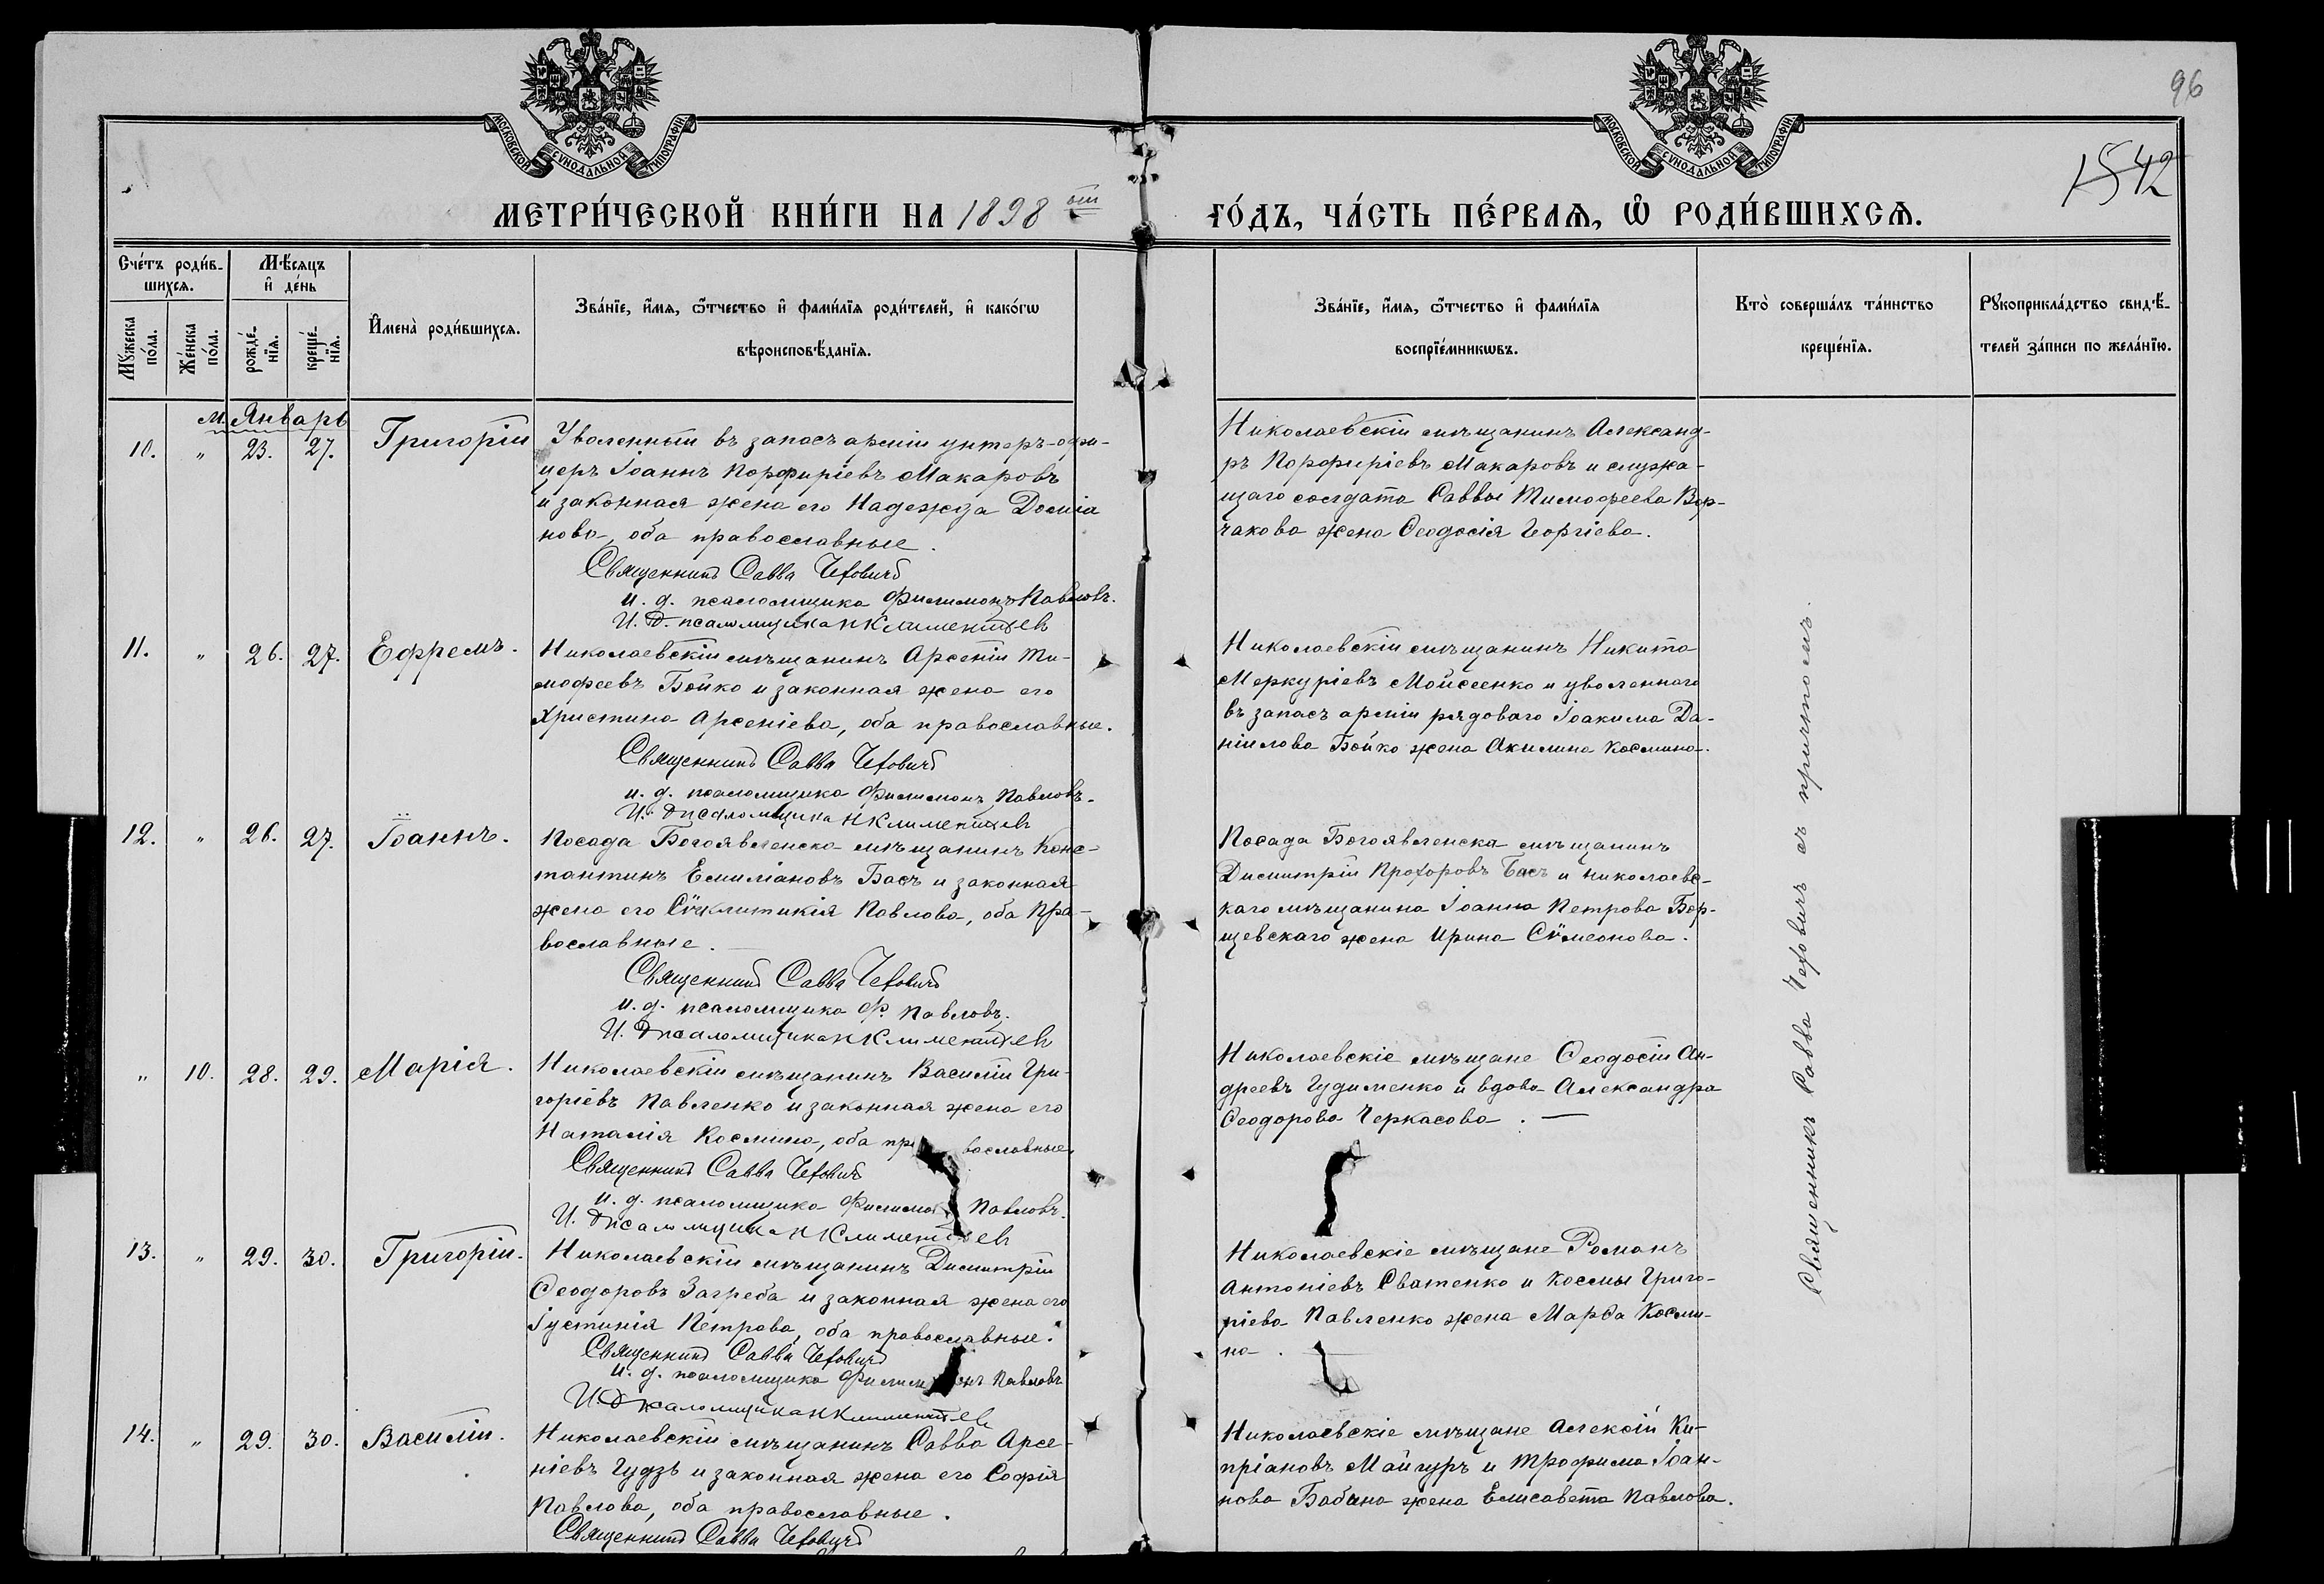 96
1542
МОСКОВСКОЙ СУНОДАЛЬНОЙ ТИПОГРАФІИ
МОСКОВСКОЙ СУНОДАЛЬНОЙ ТИПОГРАФІИ
МЕТРИ́ЧЕСКОЙ КНИ́ГИ НА 1898 ой ГО́ДЪ, ЧА́СТЬ ПЕ́РВАѦ, Ѽ РОДИ́ВШИХСѦ.
Сче́тъ роди́в-
шихсѧ.
Мѣ́сѧцъ
и҆ де́нь
Мꙋ́жеска
по́ла.
Же́нска
по́ла.
рожде́-
нїѧ.
креще́-
нїѧ.
И҆мена̀ роди́вшихсѧ.
Зва́нїе, и҆́мѧ, ѻ҆́тчество и҆ фами́лїѧ роди́телей, и҆ како́гѡ
вѣроисповѣ́данїѧ.
Зва́нїе, и҆́мѧ, ѻ҆́тчество и҆ фами́лїѧ
воспрїе́мникѡвъ.
Кто̀ соверша́лъ та́инство
креще́нїѧ.
Рꙋкоприкла́дство свидѣ́-
телей за́писи по жела́нїю.
м. Январь
10. " 23. 27. Григорій
Уволенный въ запасъ арміи унтеръ-офи-
церъ Іоаннъ Порфиріевъ Макаровъ
и законная жена его Надежда Доміа
нова, оба православные.
Священникъ Савва Чеховичъ
и. д. псаломщика Филимонъ Павловъ.
И. Д. псаломщика Н Климентьев
Николаевскій мѣщанинъ Александ-
ръ Порфиріевъ Макаровъ и служа-
щаго солдата Саввы Тимофеева Вор-
чакова жена Ѳеодосія Георгіева.
11. " 26. 27. Ефремъ.
Николаевскій мѣщанинъ Арсеній Ти-
мофеевъ Бойко и законная жена его
Христина Арсеніева, оба православные.
Священникъ Савва Чеховичъ
и. д. псаломщика Филимонъ Павловъ.
И. Д псаломщика Н Климентьев
Николаевскій мѣщанинъ Никита
Меркуріевъ Мойсеенко и уволеннаго
въ запасъ арміи рядоваго Іоакима Да-
ніилова Бойко жена Акилина Космина.
12. " 26. 27. Іоаннъ.
Посада Богоявленска мѣщанинъ Конс-
тантинъ Емиліановъ Басъ и законная
жена его Сѵнклитикія Павлова, оба пра-
вославные.
Священникъ Савва Чеховичъ
и. д. псаломщика Ф. Павловъ.
И. Д псаломщика Н Климентьев
Посада Богоявленска мѣщанинъ
Димитрій Прохоровъ Басъ и николаевс-
каго мѣщанина Іоанна Петрова Бор-
щевскаго жена Ирина Сѵмеонова.
" 10. 28. 29. Марія.
Николаевскій мѣщанинъ Василій Гри-
горіевъ Павленко и законная жена его
Наталія Космина, оба пр вославные.
Священникъ Савва Чеховичъ
и. д. псаломщика Филимо Павловъ.
И. Д псаломщика Н Климентьев
Николаевскіе мѣщане Ѳеодосій Ан-
дреевъ Гудименко и вдова Александра
Ѳеодорова Черкасова.
13. " 29. 30. Григорій.
Николаевскій мѣщанинъ Димитрій
Ѳеодоровъ Загреба и законная жена его
Іустинія Петрова, оба православные.
Священникъ Савва Чеховичъ
и. д. псаломщика Филим онъ Павловъ
И. Д псаломщика Н Климентьев
Николаевскіе мѣщане Романъ
Антоніевъ Сватенко и Космы Григо-
ріева Павленко жена Марѳа Косми-
на.
14. " 29. 30. Василій.
Николаевскій мѣщанинъ Савва Арсе-
ніевъ Гудзь и законная жена его Софія
Павлова, оба православные.
Священникъ Савва Чеховичъ
Николаевскіе мѣщане Алексій Ки-
пріановъ Майгуръ и Трофима Іоан-
нова Бабина жена Елисавета Павлова.
Священникъ Савва Чеховичъ съ причтомъ.